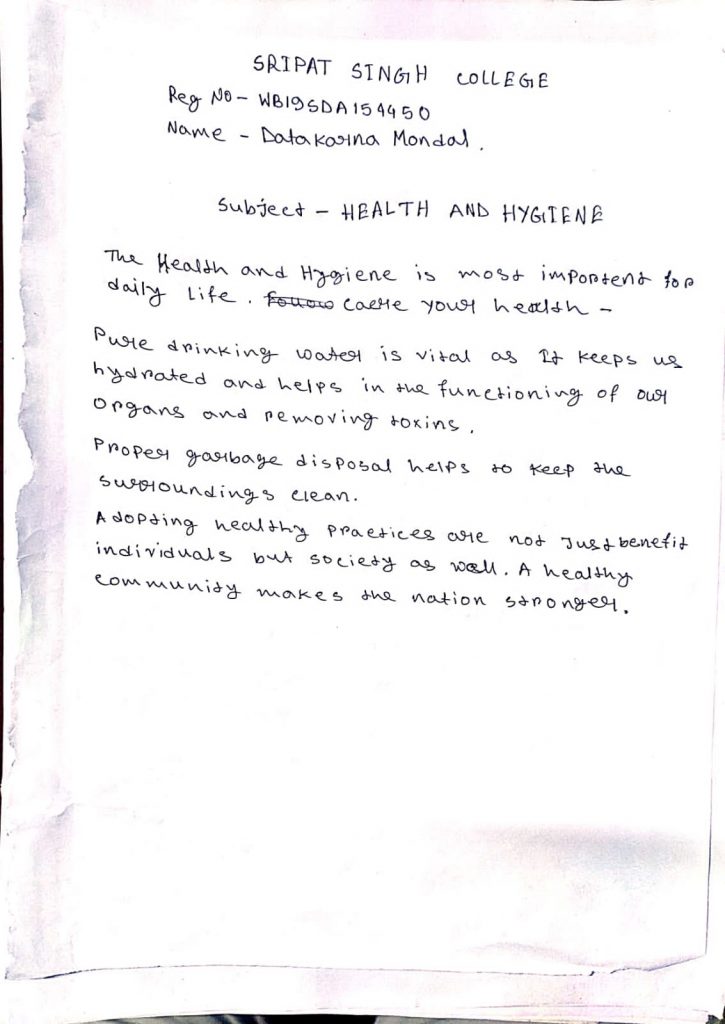 SRIPAT SINGH COLLEGE
Reg NO - WB19SDA154450
Name - Datakarna Mondal.
Subject - HEALTH AND HYGIENE
The Health and Hygiene is most importent for
daily Life. Caere your health -
Pure drinking water is vital as It keeps us
hydrated and helps in the functioning of our
organs and removing toxins.
Proper garbage disposal helps to keep the
surroundings clean.
Adopting healthy practices are not Just benefit
individuals but society as well. A healthy
community makes the nation stronger.